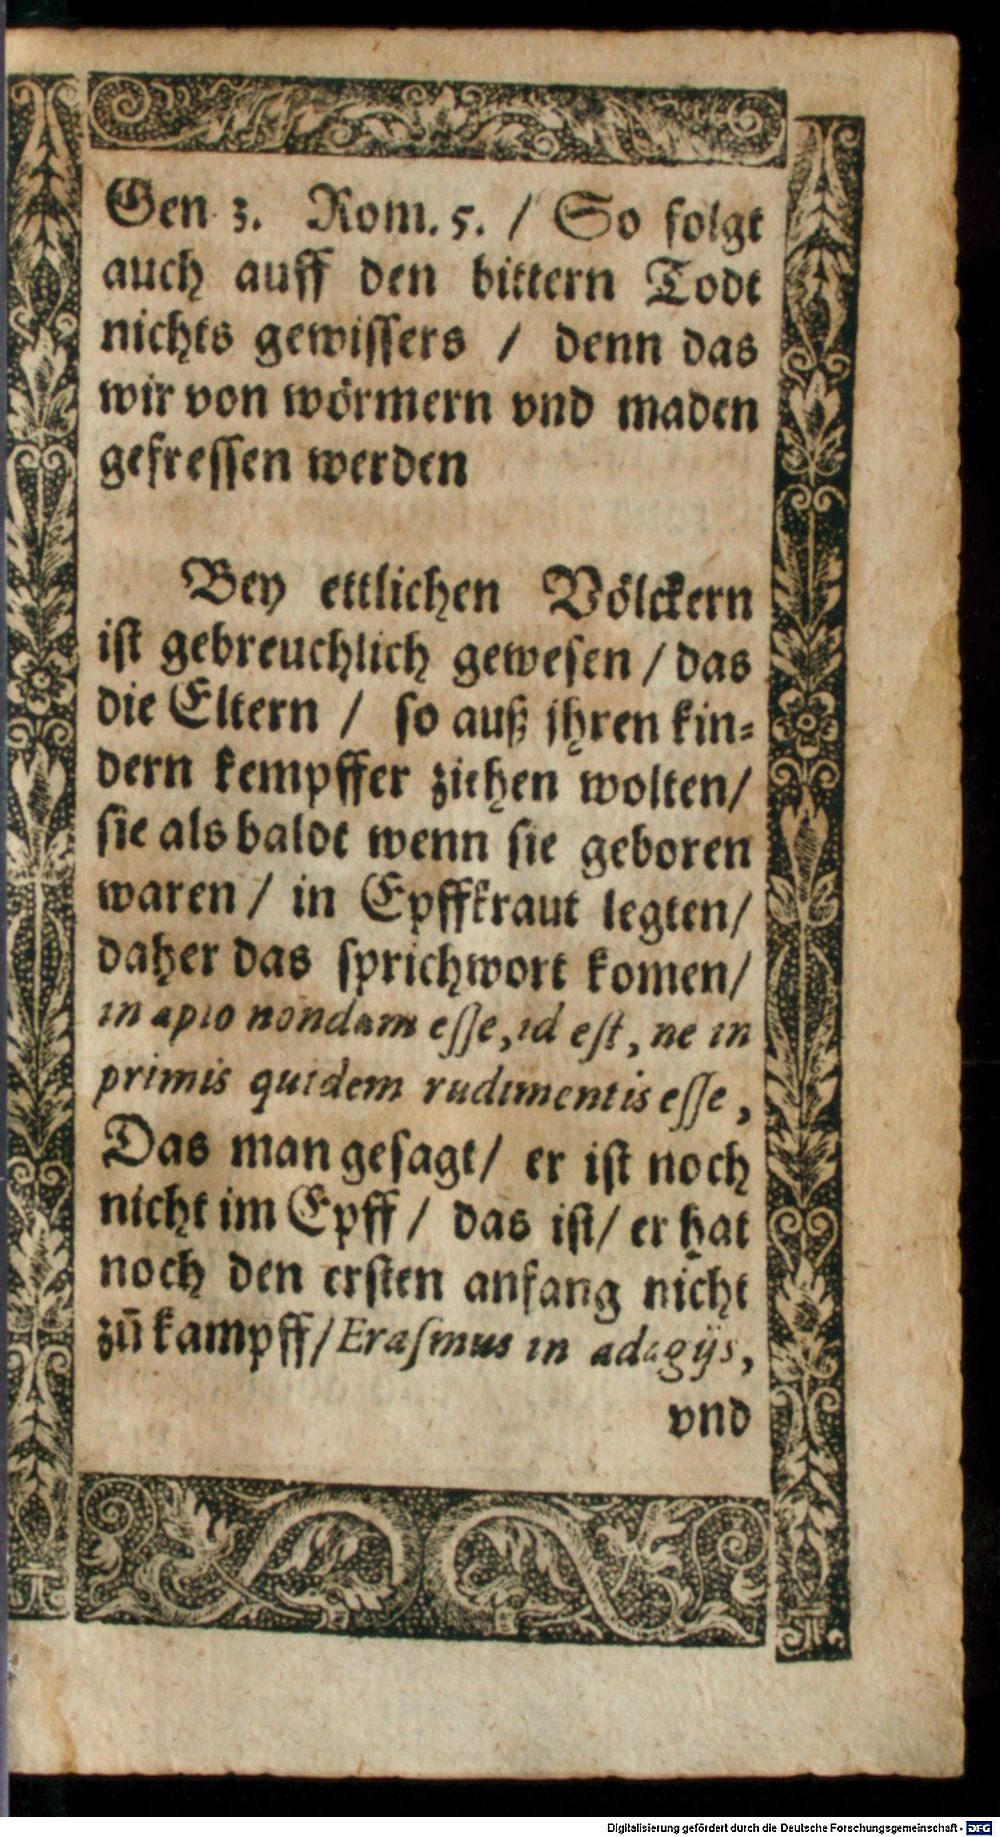 Gen. 3. Rom. 5. / So folgt
auch auff den bittern Todt
nichts gewissers / denn das
wir von wörmern vnd maden
gefressen werden
Bey ettlichen Völckern
ist gebreuchlich gewesen / das
die Eltern / so auß jhren kin⸗
dern kempffer ziehen wolten/
sie als baldt wenn sie geboren
waren / in Epffkraut legten/
daher das sprichwort komen/
in apio nondum esse, id est, ne in
primis quidem rudimentis esse,
Das man gesagt/ er ist noch
nicht im Epff / das ist/ er hat
noch den ersten anfang nicht
zū kampff/ Erasmus in adagijs,
vnd
Digitalisierung gefördert durch die Deutsche Forschungsgemeinschaft - DFG